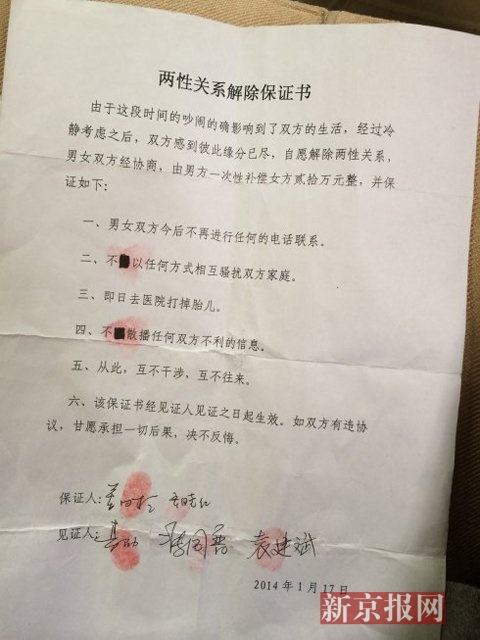 两性关系解除保证书
由于这段时间的吵闹的确影响到了双方的生活，经过冷
静考虑之后，双方感到彼此缘分已尽，自愿解除两性关系，
男女双方经协商，由男方一次性补偿女方贰拾万元整，并保
证如下：
一、男女双方今后不再进行任何的电话联系。
二、不以任何方式相互骚扰双方家庭。
三、即日去医院打掉胎儿。
四、不散播任何双方不利的信息。
五、从此，互不干涉，互不往来。
六、该保证书经见证人见证之日起生效。如双方有造协
议，甘愿承担一切后果，决不反悔。
保证人：
见证人： 袁建斌
2014年1月17日
新京报网